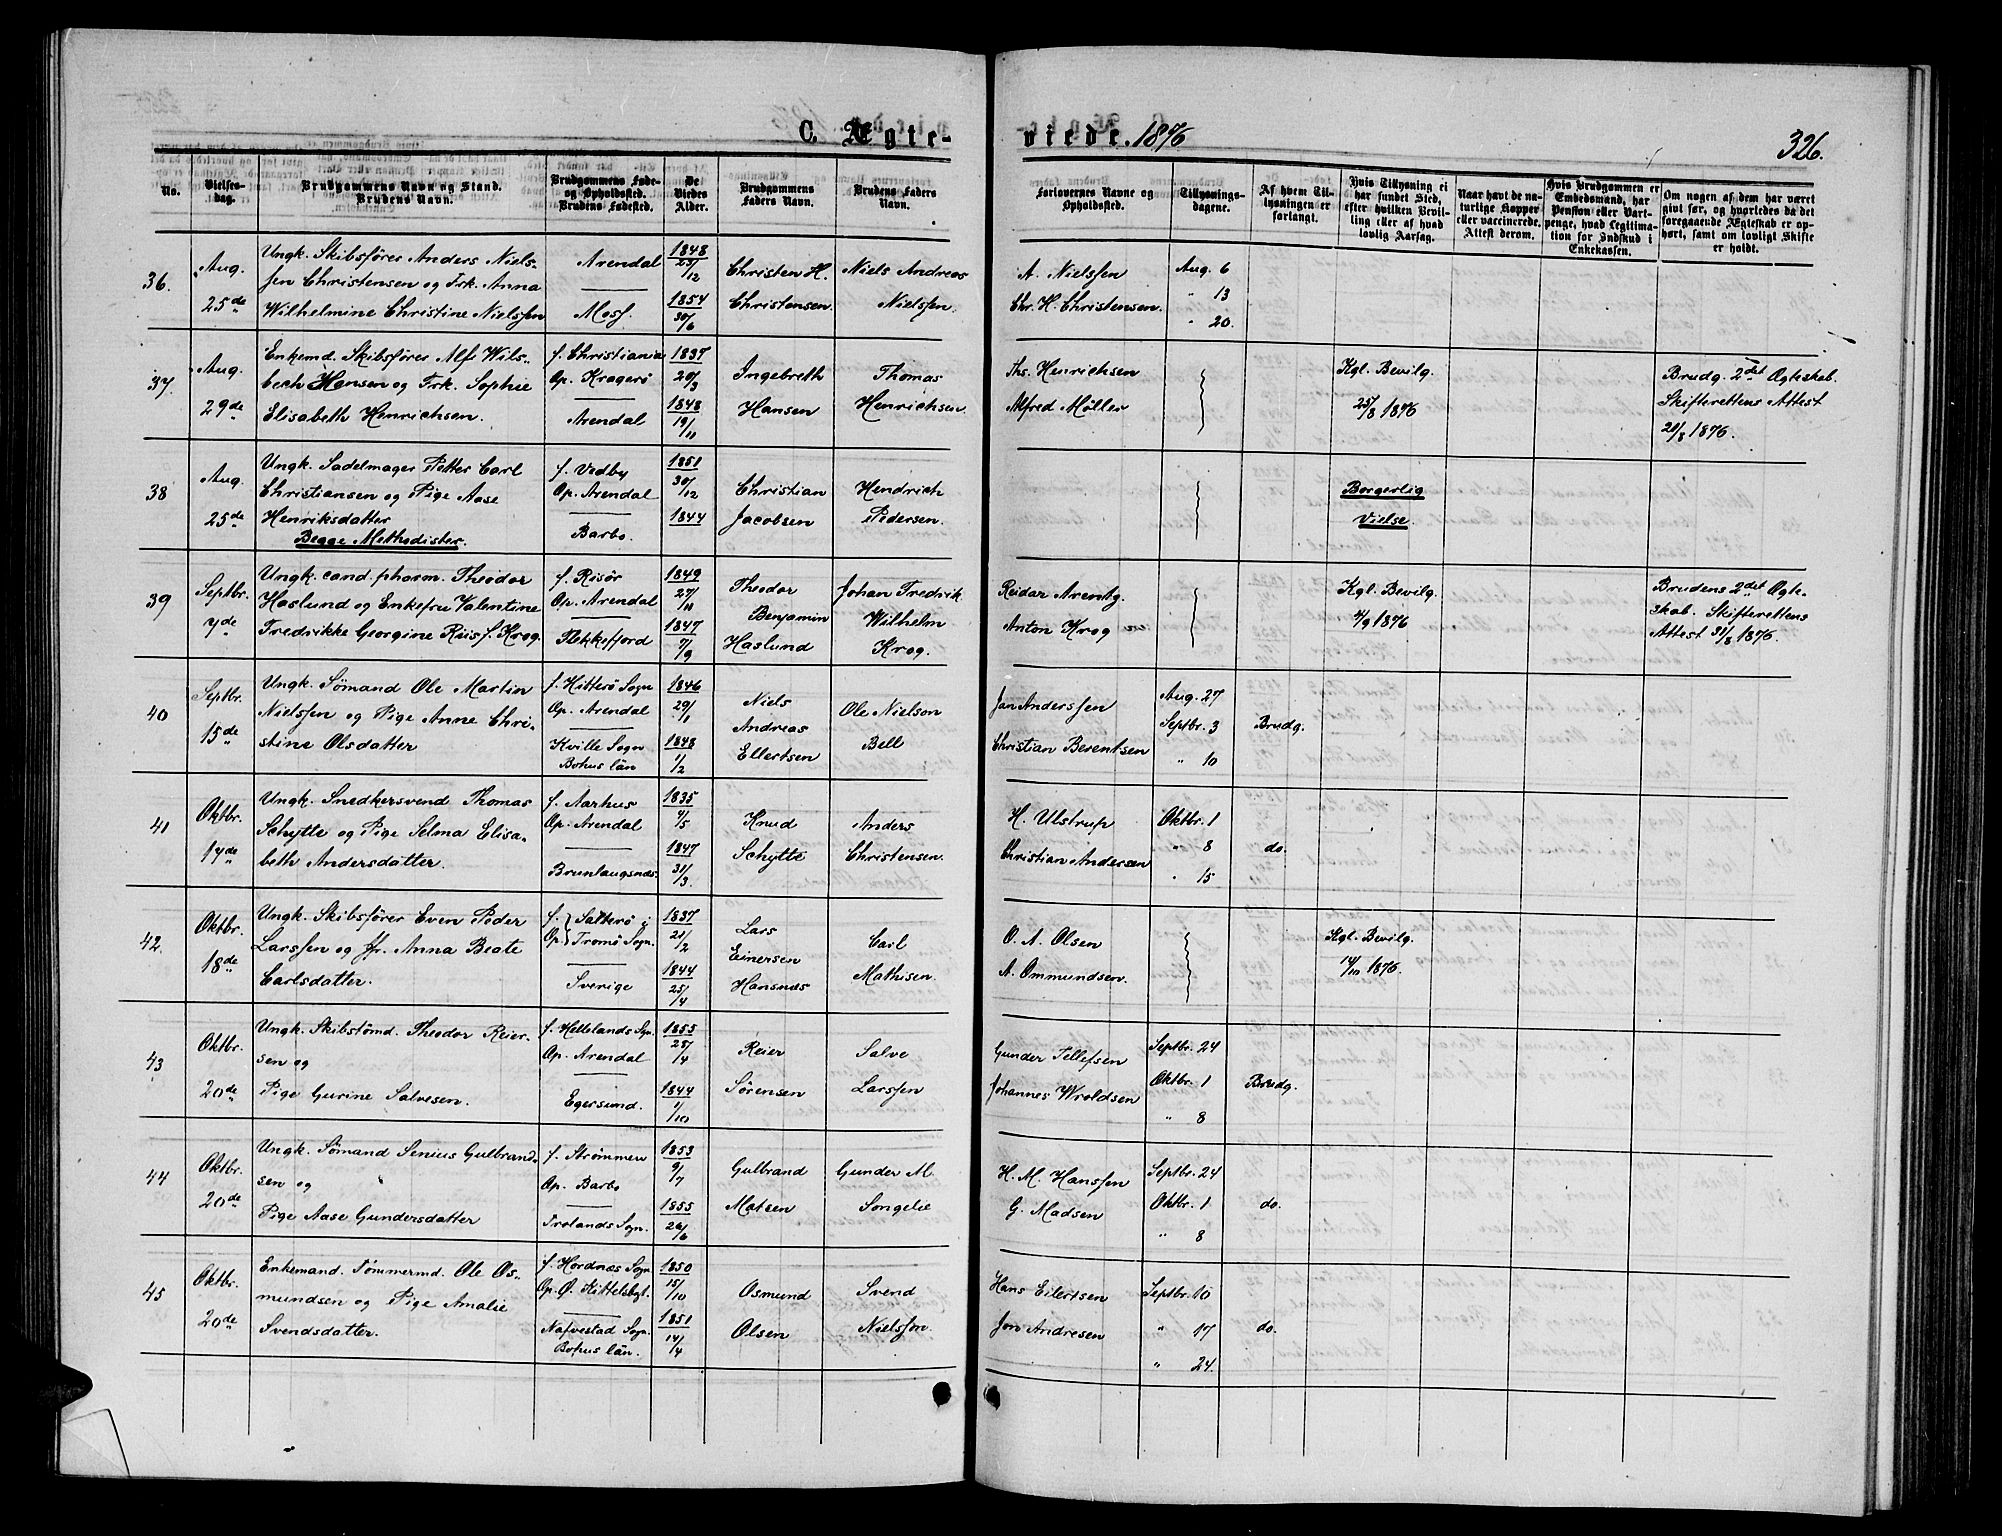 C. Ægte-
viede. 1876
326.
No.
Vielses-
dag.
Brudgommens Navn og Stand.
Brudens Navn.
Brudgommens Føde-
og Opholdssted.
Brudens Fødested.
De
Viedes
Alder.
Brudgommens
Faders Navn.
Brudens Faders
Navn.
Forlovernes Navne og
Opholdssted.
Tillysnings-
dagene.
Af hvem Til-
lysningen er
forlangt.
Hvis Tillysning ei
har fundet Sted,
efter hvilken Bevil-
ling eller af hvad
lovlig Aarsag.
Naar havt de na-
turlige Kopper
eller vaccinerede.
Attest derom.
Hvis Brudgommen er
Embedsmand, har
Pension eller Vart-
penge, hvad Legitima-
tion for Indskud i
Enkekassen.
Om nogen af dem har været
givt før, og hvorledes da det
foregaaende Ægteskab er op-
hørt, samt om lovligt Skifte
er holdt.
36.
Aug.
25de
Ungk. Skibsfører Anders Niels-
sen Christensen og Frk. Anna
Wilhelmine Christine Nielssen
Arendal
Moss.
1848
25/12
1854
30/6
Christen H.
Christensen.
Niels Andreas
Nielssen.
A. Nielssen
Chr. H. Christensen.
Aug. 6
" 13
" 20.
37.
Aug.
29de
Enkemd. Skibsfører Alfr Wils-
bech Hansen og Frk. Sophie
Elisabeth Henrichsen.
f. Christiania
Op. Kragerø
Arendal
1837
20/3
1848
19/11
Ingebreth
Hansen
Thomas
Henrichsen.
Ths. Henrichsen
Alfred Møller
Kgl. Bevilg.
25/8 1876
Brudg. 2det Ægteskab.
Skifterettens Attest
21/8 1876.
38
Aug.
25de
Ungk. Sadelmager Petter Carl
Christiansen og Pige Aase
Henriksdatter
Begge Methodister.
f. Vedby
Op. Arendal
Barbo.
1851
30/12
1844
Christian
Jacobsen
Hendrich
Pedersen.
Borgerlig
Vielse.
39
Septbr.
7de
Ungk. cand. pharm. Theodor
Haslund og Enkefru Valentine
Fredrikke Georgine Riis f. Krog.
f. Risør
Op. Arendal
Flekkefjord
1849
27/11
1847
7/9
Theodor
Benjamin
Haslund
Johan Fredrik
Wilhelm
Krog.
Reidar Arentz.
Anton Krog
Kgl. Bevilg.
4/9 1876
Brudens 2det Ægte-
skab. Skifterettens
Attest 31/8 1876.
40
Septbr.
15de
Ungk. Sømand Ole Martin
Nielssen og Pige Anne Chri-
stine Olsdatter
f. Hitterø Sogn
Op. Arendal
Kville Sogn
Bohus län
1846
29/1
1848
1/2
Niels
Andreas
Ellertsen
Ole Nielson
Bell
Jan Anderssen
Christian Berentsen
Aug. 27
Septbr. 3
" 10
Brudg.
41
Oktbr.
17de
Ungk. Snedkersvend Thomas
Schytte og Pige Selma Elisa-
beth Andersdatter.
f. Aarhus
Op. Arendal
Brunlaugsnæs.
1835
9/5
1847
31/3.
Knud
Schytte
Anders
Christensen.
H. Ulstrup
Christian Andersen
Oktbr. 1
" 8
" 15
do.
42.
Oktbr.
18de
Ungk. Skibsfører Even Peder
Larssen og Jfr. Anna Beate
Carlsdatter.
f. } Satterø i
Op. } Tromø Sogn.
Sverige
1837
21/2
1844
25/4
Lars
Einersen
Hansnæs
Carl
Mathisen.
O. A. Olsen
A. Ommundsen.
Kgl. Bevilg.
14/10 1876.
43
Oktbr.
20de
Ungk. Skibstømd. Theodor Reier-
sen og
Pige Gurine Salvesen.
f. Hetlelands Sgn.
Op. Arendal
Egersund.
1855
25/4
1844
1/10
Reier
Sørensen
Salve
Larssen
Gunder Tellefsen
Johannes Wroldsen
Septbr. 24
Oktbr. 1
" 8
Brudg.
44
Oktbr.
20de
Ungk. Sømand Senius Gulbrand-
sen og
Pige Aase Gundersdatter
f. Strømmen
Op. Barbo
Frolands Sgn.
1853
9/7
1855
26/6
Gulbrand
Matsen
Gunder M.
Songelie
H. M. Hanssen
G. Madsen
Septbr. 24
Oktbr. 1
" 8
do.
45
Oktbr.
20de
Enkemand. Tømmermd. Ole Os-
mundsen og Pige Amalie
Svendsdatter.
f. Hordnæs Sogn
Op. Ø. Kittelsbgt.
Nafvestad Sogn.
Bohus län.
1850
15/10
1851
14/4
Osmund
Olsen
Svend
Nielsson.
Hans Eilertsen
Jon Andresen
Septbr. 10
" 17
" 24.
do.